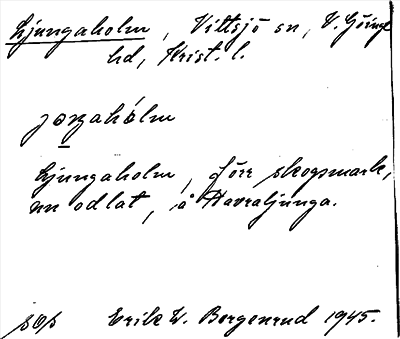 Ljungaholm, Vittsjö sn, V. Göinge
hd, Krist. l.
joŋahólm
Ljungaholm, förr skogsmark,
nu odlat, å Havraljunga.
sOs Erik W. Borgenrud 1945.